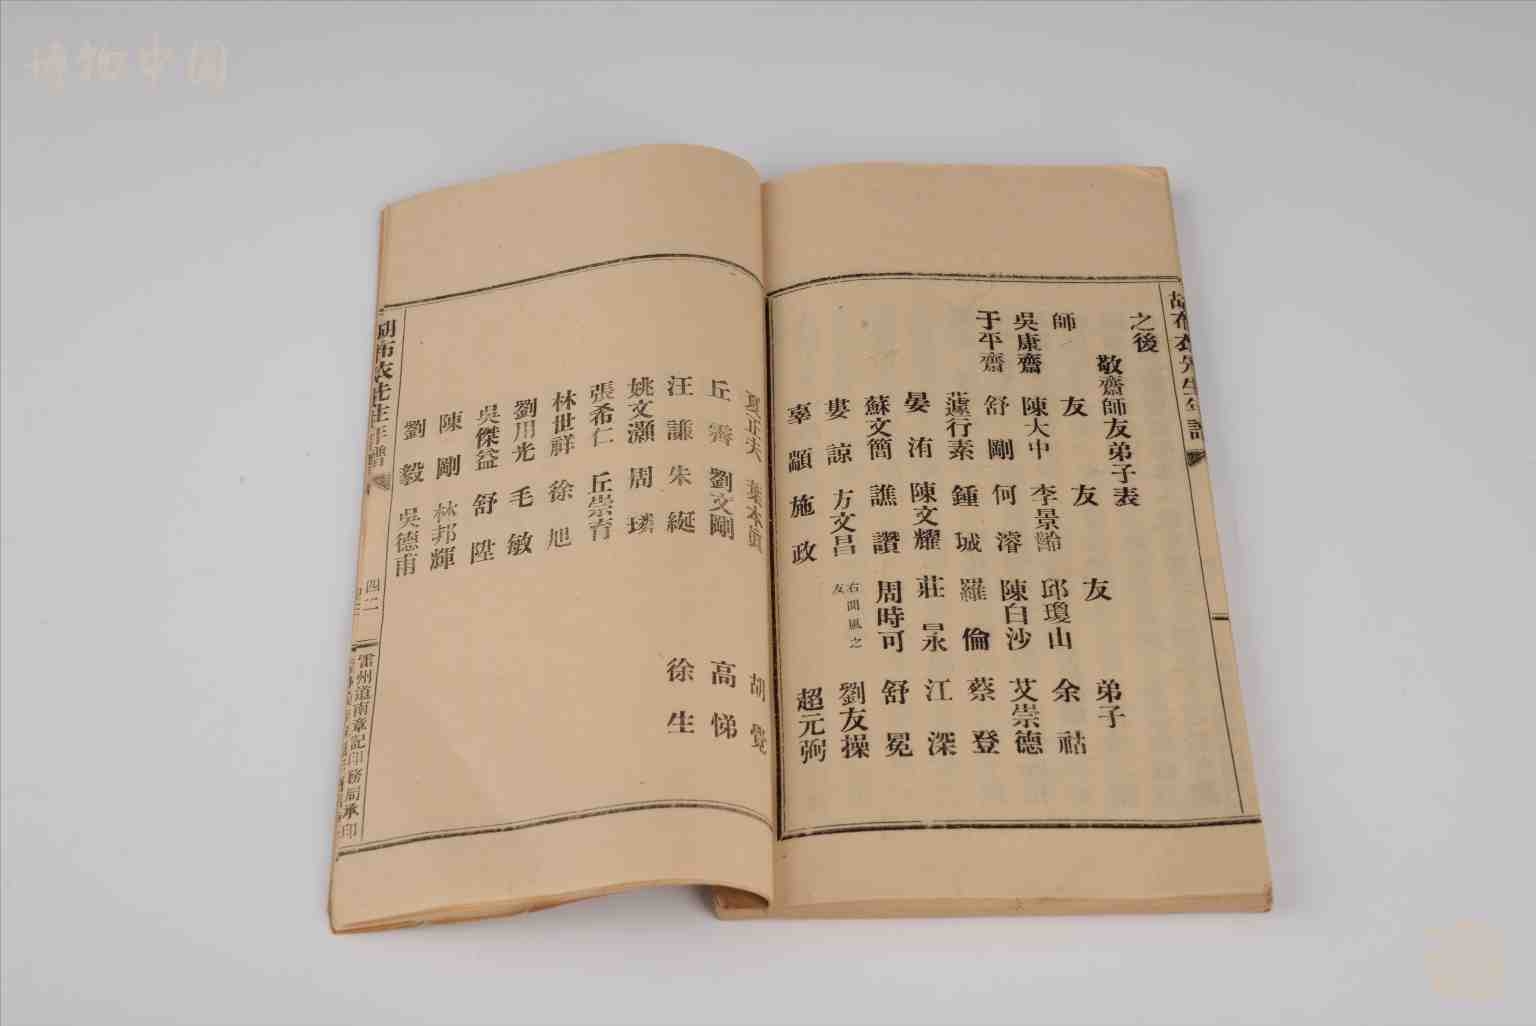 博物中国
之後
敬齋師友弟子表
師 友 友 友 弟子
吳康齋 陳大中 李景齡 邱瓊山 余祜
于平齋 舒剛 何濬 陳白沙 艾崇德
蘧行素 鍾城 羅倫 蔡登
晏洧 陳文耀 莊杲 江深
蘇文簡 譙讚 周時可 舒冕
婁諒 方文昌 右聞風之友 劉友操
辜顓 施政 超元弼
夏正夫 葉本貞 胡覺
丘霽 劉文剛 高悌
汪謙 朱綖 徐生
姚文灝 周璘
張希仁 丘崇育
林世祥 徐旭
劉用光 毛敏
吳傑益 舒陞
陳剛 林邦輝
劉毅 吳德甫
胡布衣先生年譜
四二
雷州道南章記印務局承印